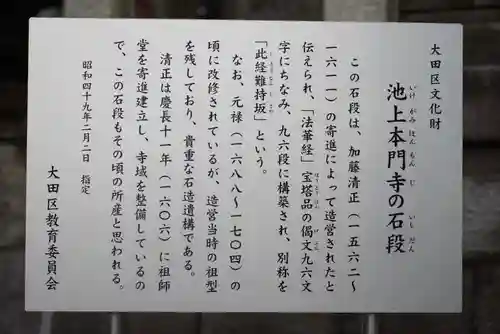 大田区文化財
池上本門寺の石段
いけがみほんもんじ いしだん
この石段は、加藤清正（一五六二～
一六一一）の寄進によって造営されたと
伝えられ、「法華経」宝塔品の偈文九六文
ほうとうほん げぶん
字にちなみ、九六段に構築され、別称を
「此経難持坂」という。
しきょうなんじざか
なお、元禄（一六八八～一七〇四）の
頃に改修されているが、造営当時の祖型
を残しており、貴重な石造遺構である。
清正は慶長十一年（一六〇六）に祖師
堂を寄進建立し、寺域を整備しているの
で、この石段もその頃の所産と思われる。
昭和四十九年二月二日 指定
大田区教育委員会